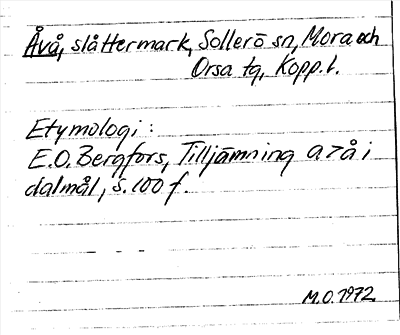 Åvå, slåttermark, Sollerö sn, Mora och
Orsa tg, Kopp.l.
Etymologi:
E.O. Bergfors, Tilljämning a > å i
dalmål, s. 100 f.
M.O. 1972